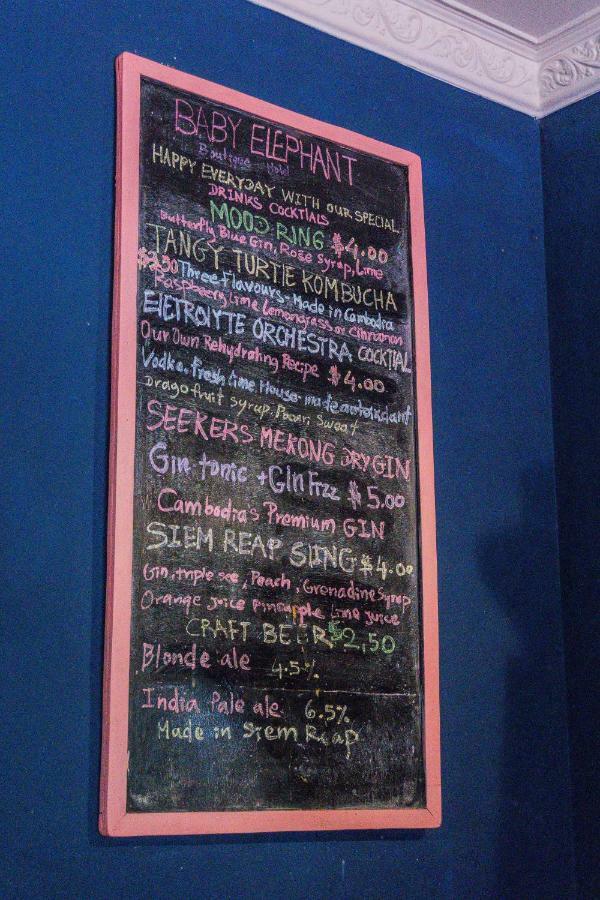 BABY ELEPHANT
Boutique Hotel
HAPPY EVERYDAY WITH OUR SPECIAL
DRINKS COCKTIALS
MOOD RING $4.00
Butterfly Blue Gin, Rose Syrup, Lime
TANGY TURTIE KOMBUCHA
$2.50 Three Flavours - Made in Cambodia
Raspbeery Lime Lemongrass or Cinnamon
ElETROlYTE ORCHESTRA COCKTIAL
Our Own Rehydrating Recipe $4.00
Vodka, fresh lime House-made antioxidant
Dragofruit syrup, Pocari Sweat
SEEKERS MEKONG DRY GIN
Gin tonic + GIn Fizz $5.00
Cambodia's Premium GIN
SIEM REAP SlING $4.00
Gin, triple sec, Peach, Grenadine Syrup
Orange juice pineapple Lime juice
CRAFT BEER $2,50
Blonde ale 4.5%
India Pale ale 6.5%
Made in Siem Reap